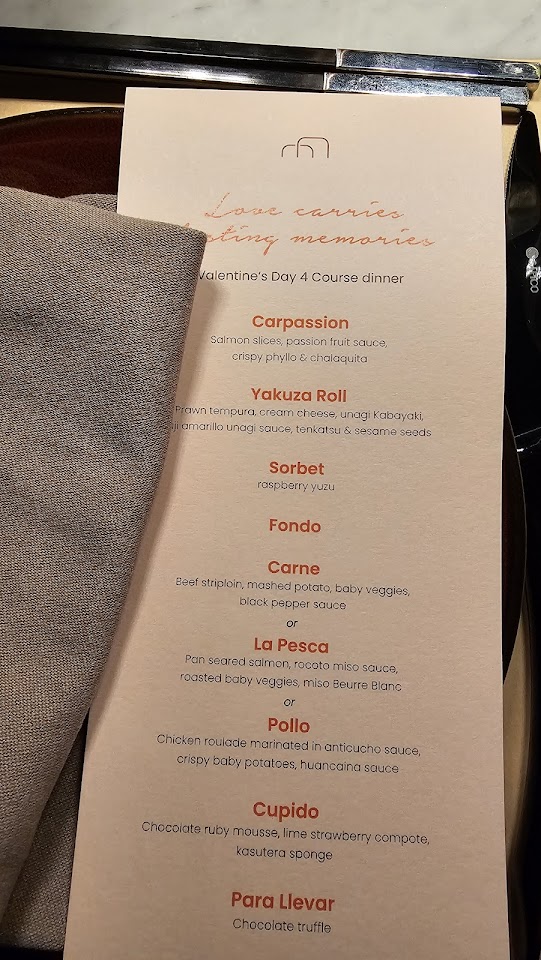 Love carries
memories
Valentine's Day 4 Course dinner
Carpassion
Salmon slices, passion fruit sauce,
crispy phyllo & chalaquita
Yakuza Roll
Prawn tempura, cream cheese, unagi Kabayaki,
amarillo unagi sauce, tenkatsu & sesame seeds
Sorbet
raspberry yuzu
Fondo
Carne
Beef striploin, mashed potato, baby veggies,
black pepper sauce
or
La Pesca
Pan seared salmon, rocoto miso sauce,
roasted baby veggies, miso Beurre Blanc
or
Pollo
Chicken roulade marinated in anticucho sauce,
crispy baby potatoes, huancaina sauce
Cupido
Chocolate ruby mousse, lime strawberry compote,
kasutera sponge
Para Llevar
Chocolate truffle